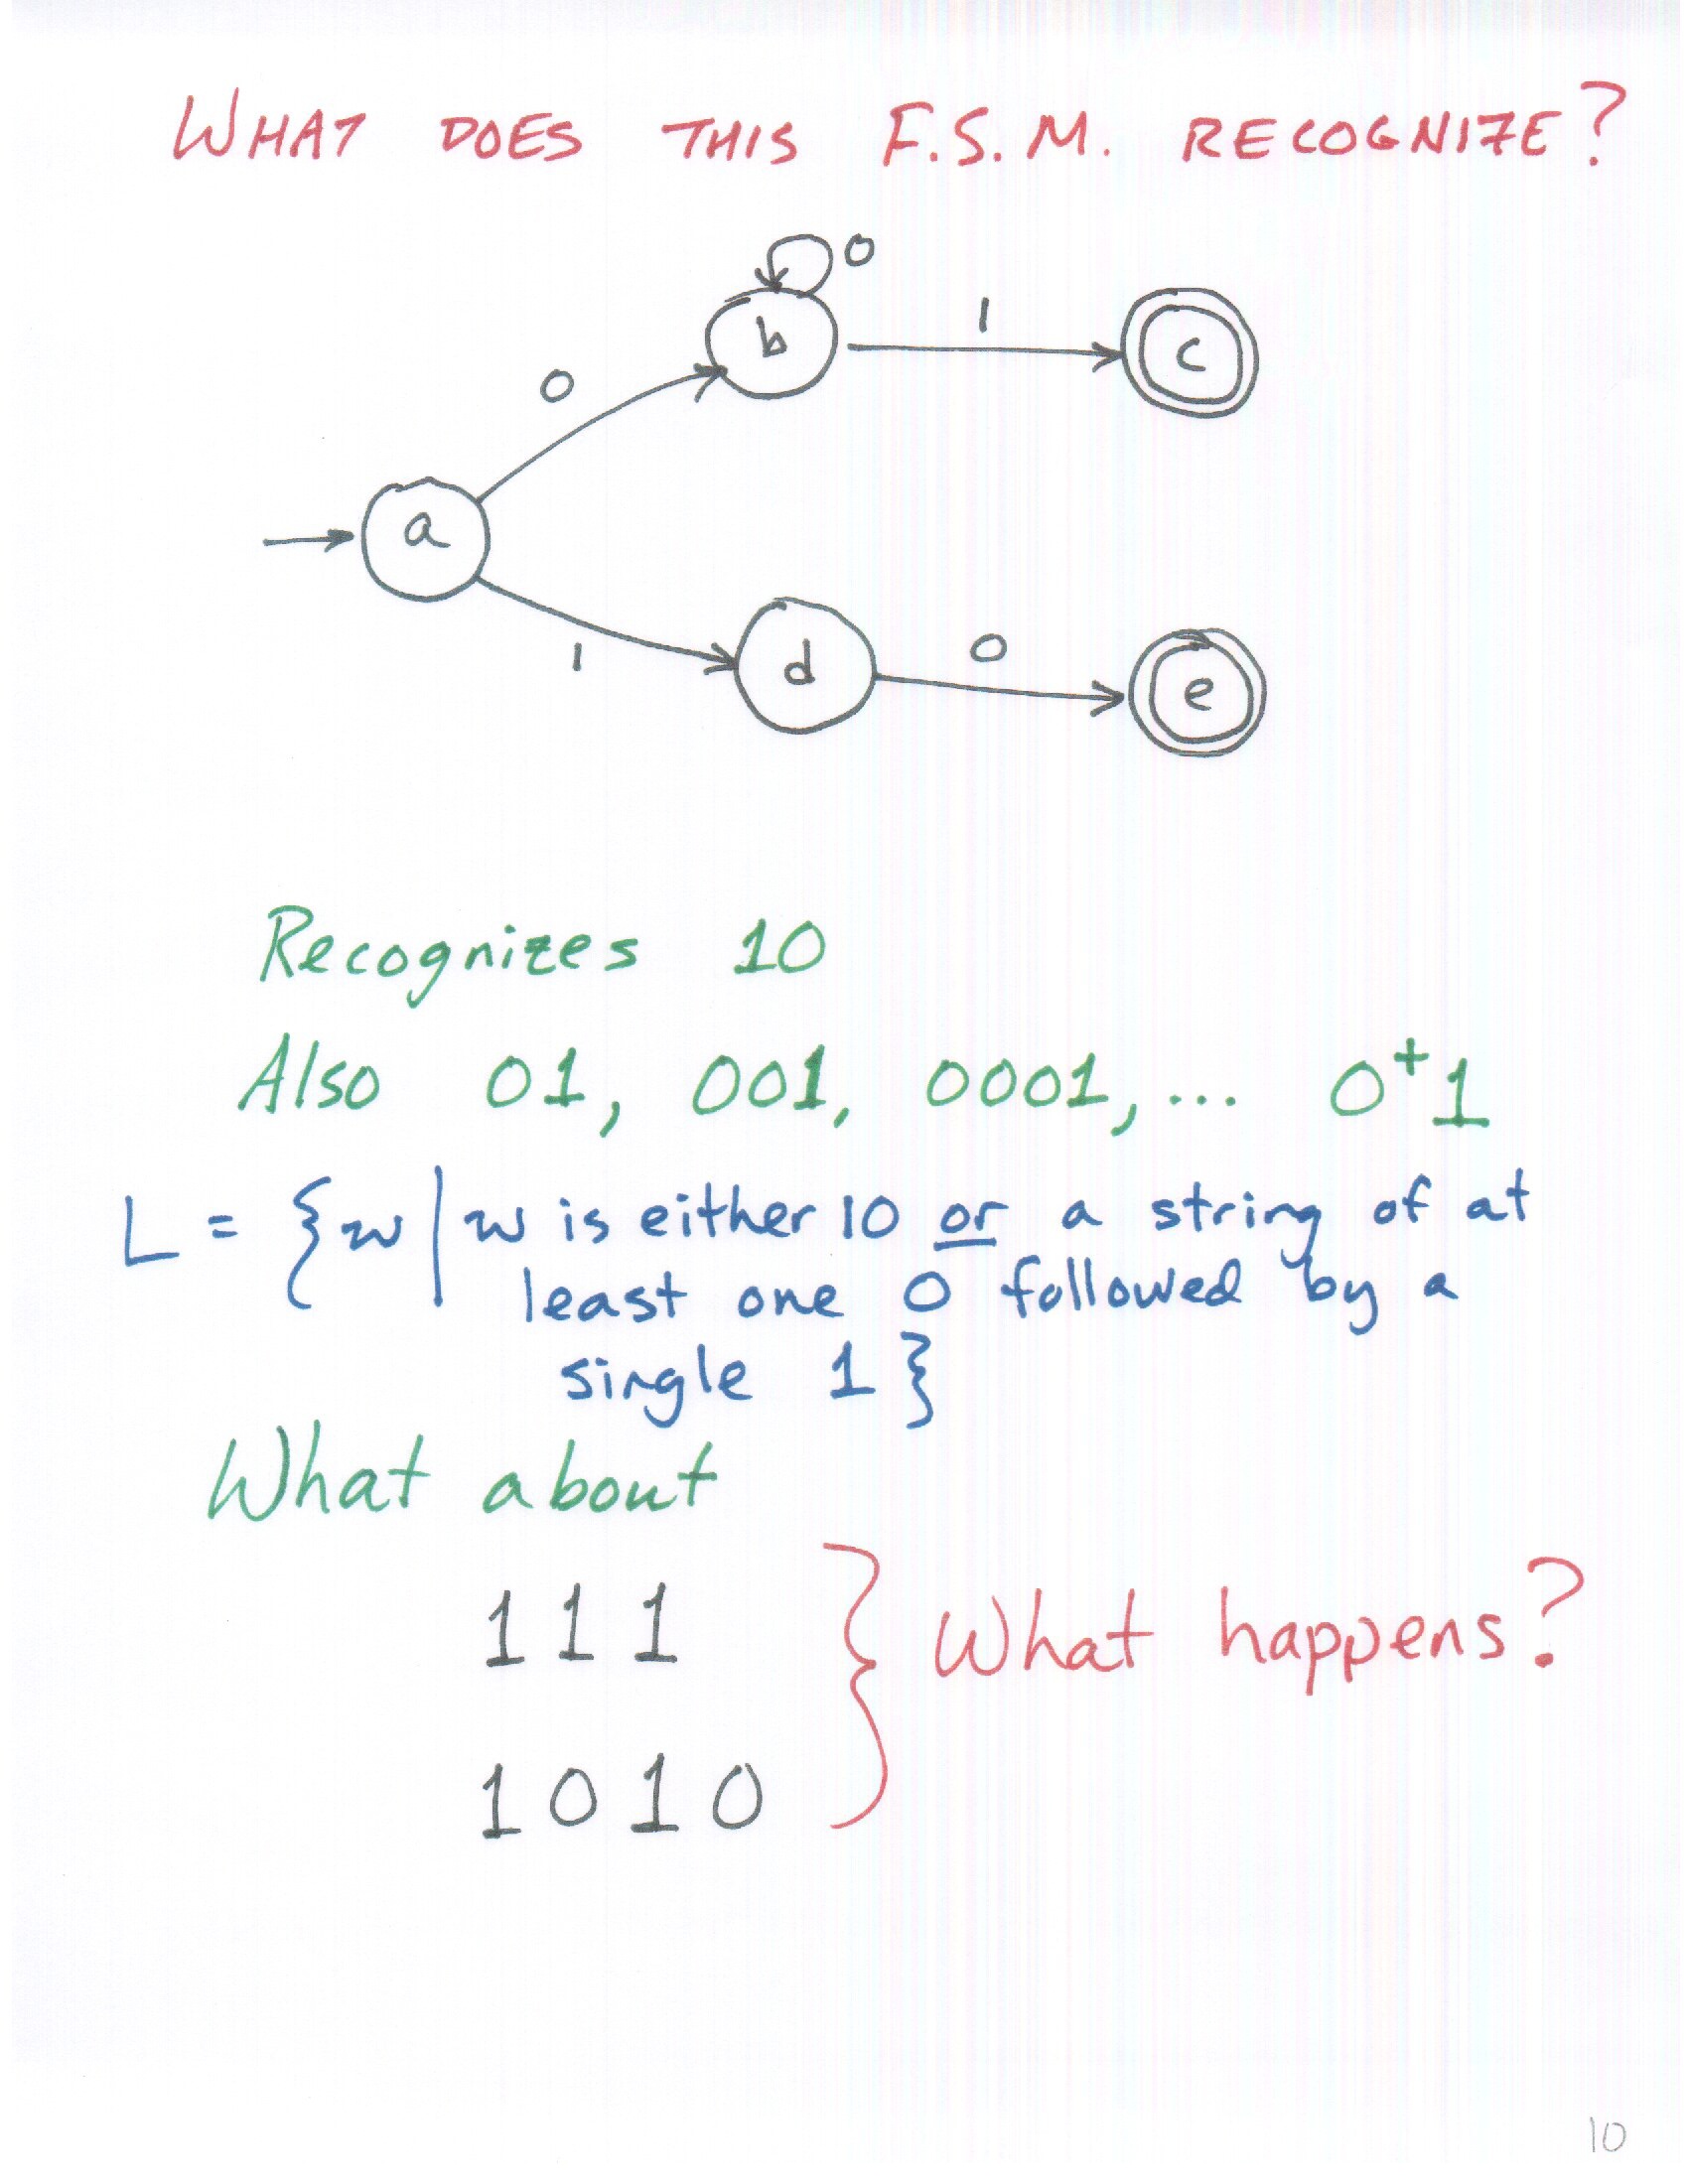 WHAT DOES THIS F.S.M. RECOGNIZE?
0
b
1
c
0
a
1
d
0
e
Recognizes 10
Also 01, 001, 0001, ... 0⁺1
L = {w | w is either 10 or a string of at
least one 0 followed by a
single 1}
What about
111
What happens?
1010
10